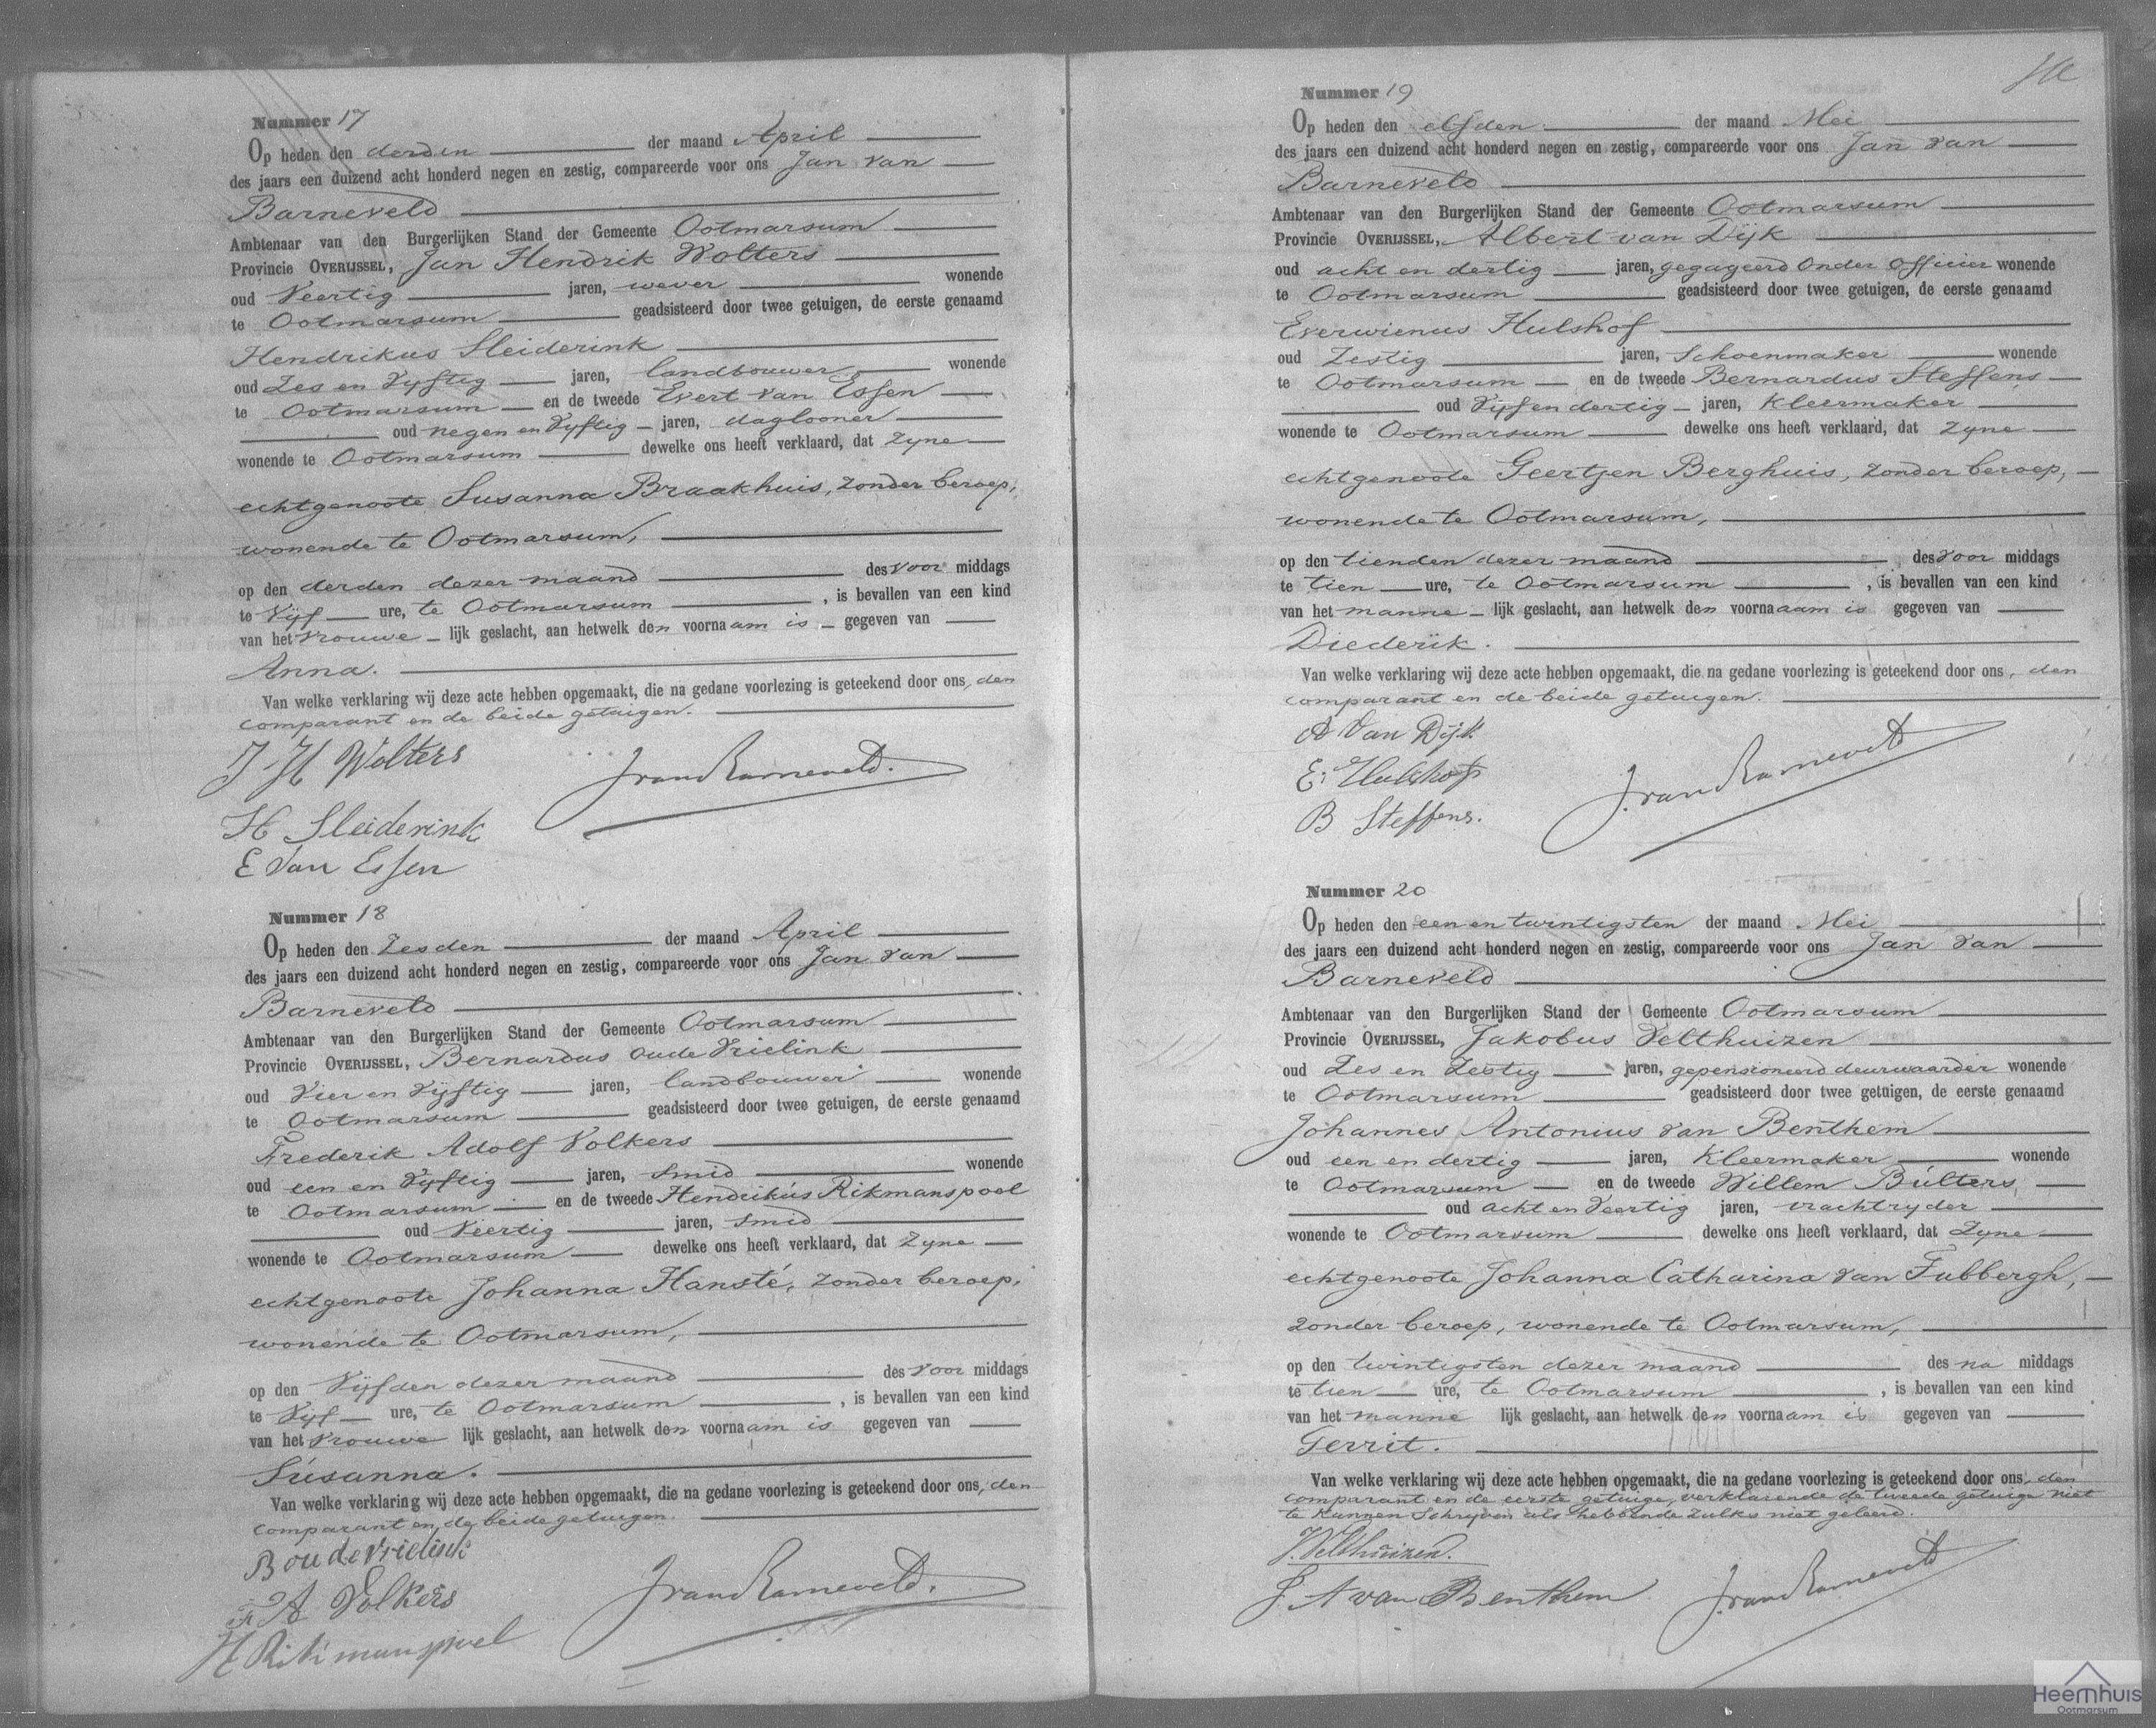 Nummer 17
Op heden den derden der maand April
des jaars een duizend acht honderd negen en zestig, compareerde voor ons Jan van
Barneveld
Ambtenaar van den Burgerlijken Stand der Gemeente Ootmarsum
Provincie OVERIJSSEL, Jan Hendrik Wolters
oud Veertig jaren, wever wonende
te Ootmarsum geadsisteerd door twee getuigen, de eerste genaamd
Hendrikus Sleiderink
oud Zes en Vyftig jaren, landbouwer wonende
te Ootmarsum en de tweede Evert van Essen
oud negen en Vyftig jaren, daglooner
wonende te Ootmarsum dewelke ons heeft verklaard, dat Zyne
echtgenoote Susanna Braakhuis, zonder beroep,
wonende te Ootmarsum,
op den derden dezer maand des voor middags
te Vyf ure, te Ootmarsum, is bevallen van een kind
van het vrouwe lijk geslacht, aan hetwelk den voornaam is gegeven van
Anna.
Van welke verklaring wij deze acte hebben opgemaakt, die na gedane voorlezing is geteekend door ons, den
comparant en de beide getuigen.
J H Wolters
J van Barneveld.
H Sleiderink
E Van Essen
Nummer 18
Op heden den Zesden der maand April
des jaars een duizend acht honderd negen en zestig, compareerde voor ons Jan van
Barneveld
Ambtenaar van den Burgerlijken Stand der Gemeente Ootmarsum
Provincie OVERIJSSEL, Bernardus oude Vrielink
oud Vier en Vyftig jaren, landbouwer wonende
te Ootmarsum geadsisteerd door twee getuigen, de eerste genaamd
Frederik Adolf Volkers
oud een en Vyftig jaren, Smid wonende
te Ootmarsum en de tweede Hendrikús Rikmanspoel
oud Veertig jaren, Smid
wonende te Ootmarsum dewelke ons heeft verklaard, dat Zyne
echtgenoote Johanna Hansté, zonder beroep,
wonende te Ootmarsum,
op den Vyfden dezer maand des voor middags
te Vyf ure, te Ootmarsum, is bevallen van een kind
van het vrouwe lijk geslacht, aan hetwelk den voornaam is gegeven van
Súsanna.
Van welke verklaring wij deze acte hebben opgemaakt, die na gedane voorlezing is geteekend door ons, den
comparant en de beide getuigen.
B oude Vrielink
J van Barneveld.
A Volkers
H Rikmanspoel
Nummer 19
Op heden den elfden der maand Mei
des jaars een duizend acht honderd negen en zestig, compareerde voor ons Jan van
Barneveld
Ambtenaar van den Burgerlijken Stand der Gemeente Ootmarsum
Provincie OVERIJSSEL, Albert van Dijk
oud acht en dertig jaren, gegageerd Onder Officier wonende
te Ootmarsum geadsisteerd door twee getuigen, de eerste genaamd
Everwienus Hulshof
oud Zestig jaren, Schoenmaker wonende
te Ootmarsum en de tweede Bernardus Steffens
oud Vyf en dertig jaren, Kleermaker
wonende te Ootmarsum dewelke ons heeft verklaard, dat Zyne
echtgenoote Geertjen Berghuis, zonder beroep,
wonende te Ootmarsum,
op den tienden dezer maand des voor middags
te tien ure, te Ootmarsum, is bevallen van een kind
van het manne lijk geslacht, aan hetwelk den voornaam is gegeven van
Diederik.
Van welke verklaring wij deze acte hebben opgemaakt, die na gedane voorlezing is geteekend door ons, den
comparant en de beide getuigen.
A Van Dijk
E. Hulshof
J. van Barneveld
B Steffens.
Nummer 20
Op heden den een en twintigsten der maand Mei
des jaars een duizend acht honderd negen en zestig, compareerde voor ons Jan van
Barneveld
Ambtenaar van den Burgerlijken Stand der Gemeente Ootmarsum
Provincie OVERIJSSEL, Jakobus Velthuizen
oud Zes en Zestig jaren, gepensioneerd deurwaarder wonende
te Ootmarsum geadsisteerd door twee getuigen, de eerste genaamd
Johannes Antonius van Benthem
oud een en dertig jaren, Kleermaker wonende
te Ootmarsum en de tweede Willem Búlters
oud acht en Veertig jaren, vrachtryder
wonende te Ootmarsum dewelke ons heeft verklaard, dat Zyne
echtgenoote Johanna Catharina van Fubbergh,
zonder beroep, wonende te Ootmarsum,
op den twintigsten dezer maand des na middags
te tien ure, te Ootmarsum, is bevallen van een kind
van het manne lijk geslacht, aan hetwelk den voornaam is gegeven van
Gerrit.
Van welke verklaring wij deze acte hebben opgemaakt, die na gedane voorlezing is geteekend door ons, den
comparant en de eerste getuige, verklarende de tweede getuige niet
te kunnen Schryven als hebbende zulks niet geleerd.
J. Velthuizen.
J A van Benthem
J. van Barneveld
Heemhuis
Ootmarsum